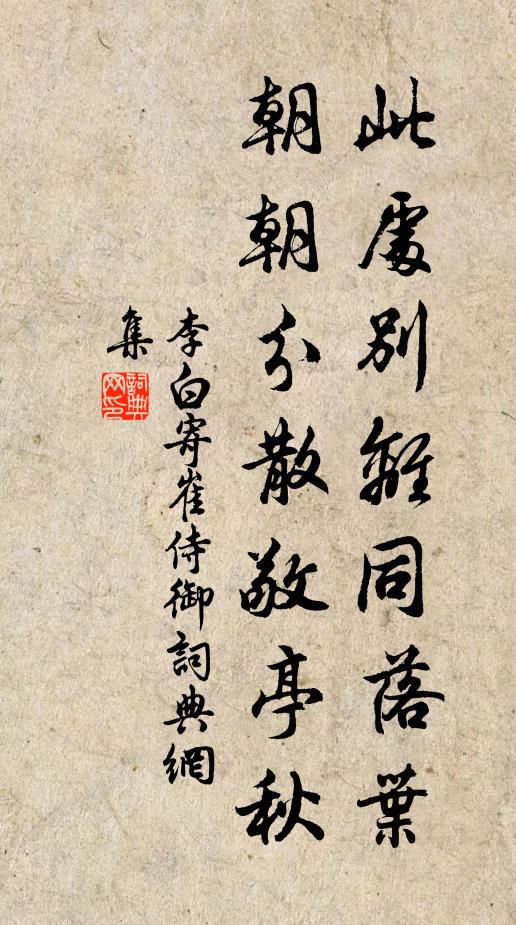 此處別離同落葉
朝朝分散敬亭秋
李白寄崔侍御詞典網
集
詞典
网印